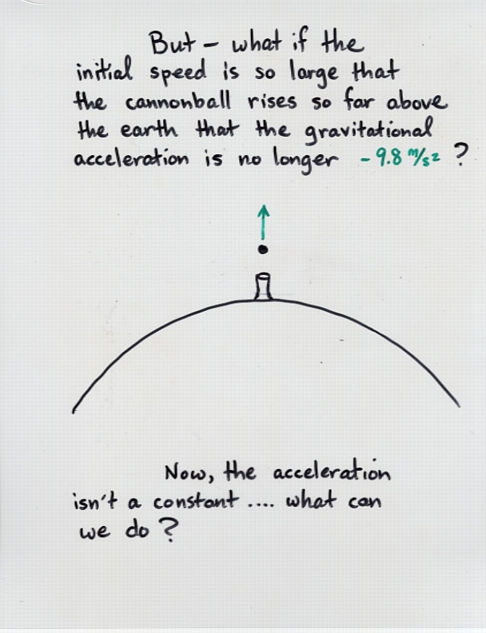 But - what if the
initial speed is so large that
the cannonball rises so far above
the earth that the gravitational
acceleration is no longer - 9.8 m/s² ?
Now, the acceleration
isn't a constant .... what can
we do ?